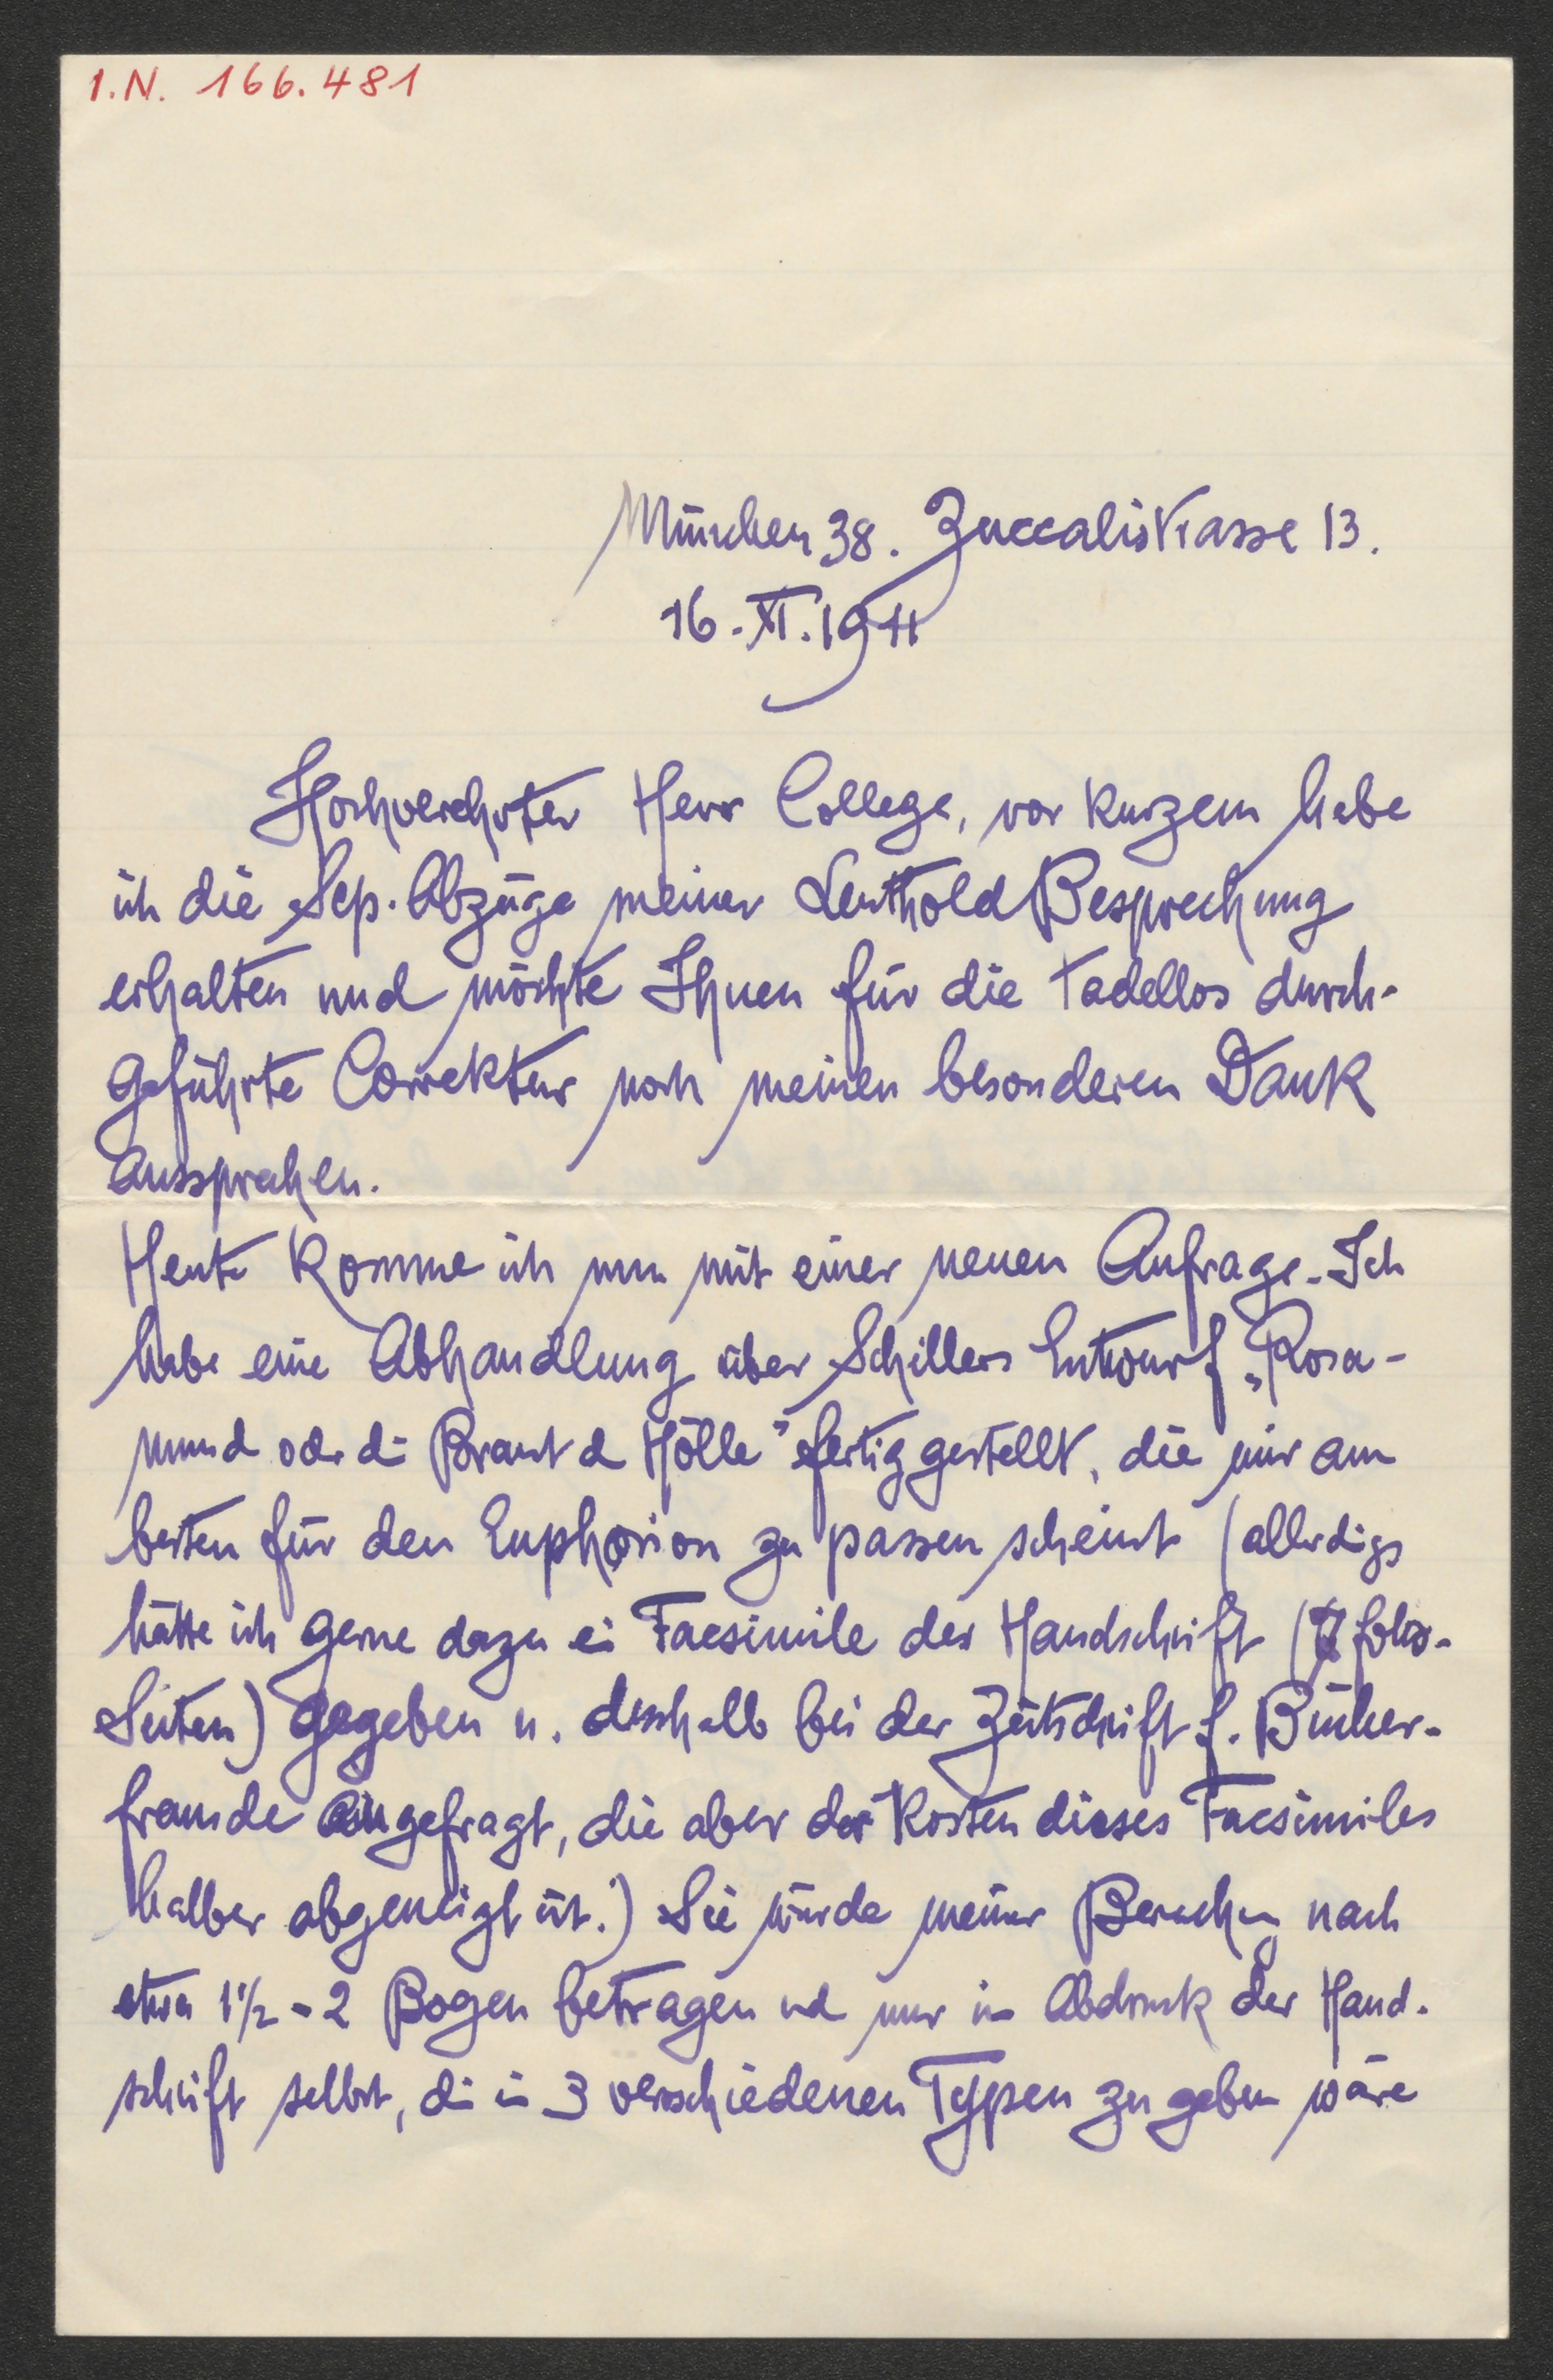 I.N. 166.481
München 38. Zuccalistrasse 13.
16. XI. 1911
Hochverehrter Herr College, vor kurzem habe
ich die Sep. Abzüge meiner Leuthold Besprechung
erhalten und möchte Ihnen für die tadellos durch-
geführte Correktur noch meinen besonderen Dank
aussprechen.
Heute komme ich nun mit einer neuen Anfrage. Ich
habe eine Abhandlung über Schillers Entwurf „Rosa-
mund oder di Braut d Hölle" fertig gestellt, die mir am
besten für den Euphorion zu passen scheint (allerdigs
hätte ich gerne dazu ei Facsimile der Handschrift ( folio-
Seiten) gegeben u. deshalb bei der Zeitschrift f. Bücher-
freunde angefragt, die aber der Kosten dieses Facsimiles
halber abgeneigt ist.) Sie würde meiner Berechng nach
etwa 1½ - 2 Bogen betragen ud nur in Abdruck der Hand-
schrift selbst, di in 3 verschiedenen Typen zu geben wäre